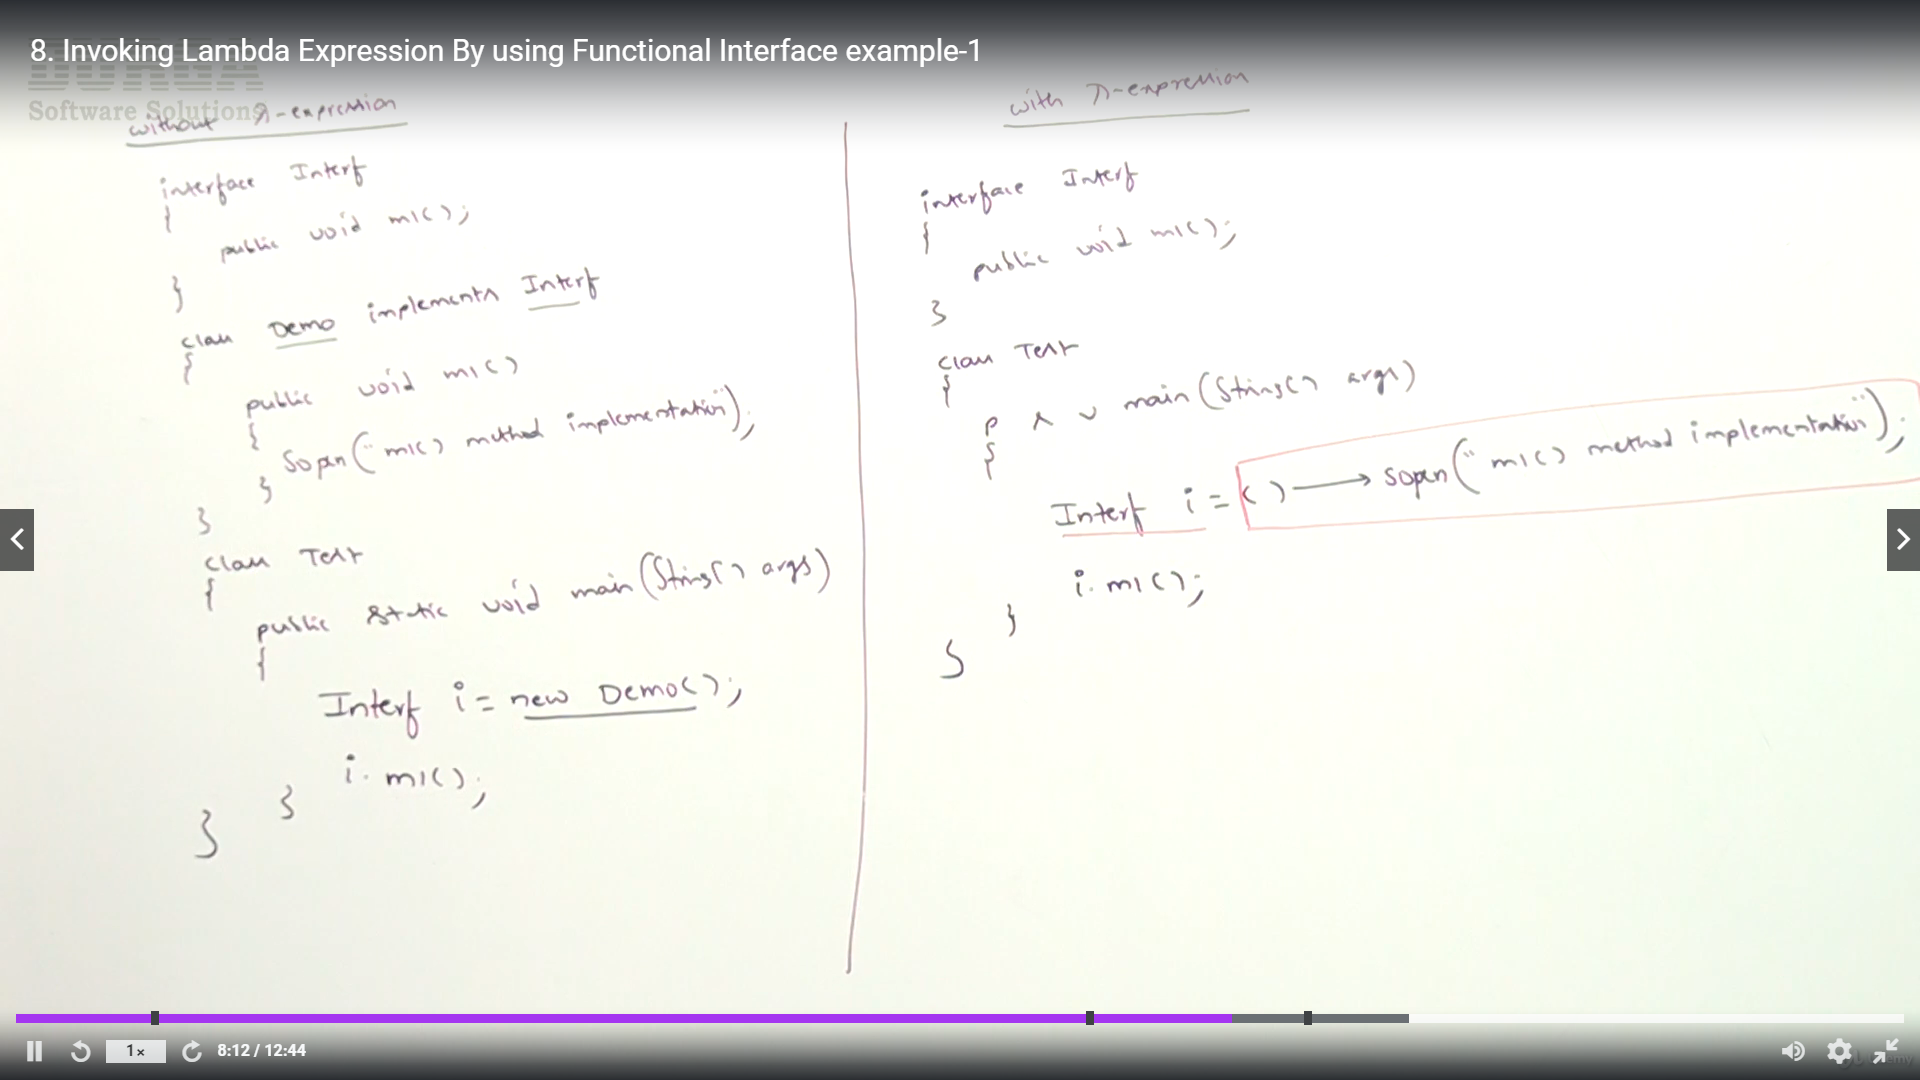 8. Invoking Lambda Expression By using Functional Interface example-1
DURGA
Software Solutions
without λ-expression
interface Interf
{
public void m1();
}
class Demo implements Interf
{
public void m1()
{
Sopln("m1() method implementation");
}
}
class Test
{
public static void main(String[] args)
{
Interf i = new Demo();
i.m1();
}
}
with λ-expression
interface Interf
{
public void m1();
}
class Test
{
p s v main(String[] args)
{
Interf i = () → sopln("m1() method implementation");
i.m1();
}
}
1x
8:12 / 12:44